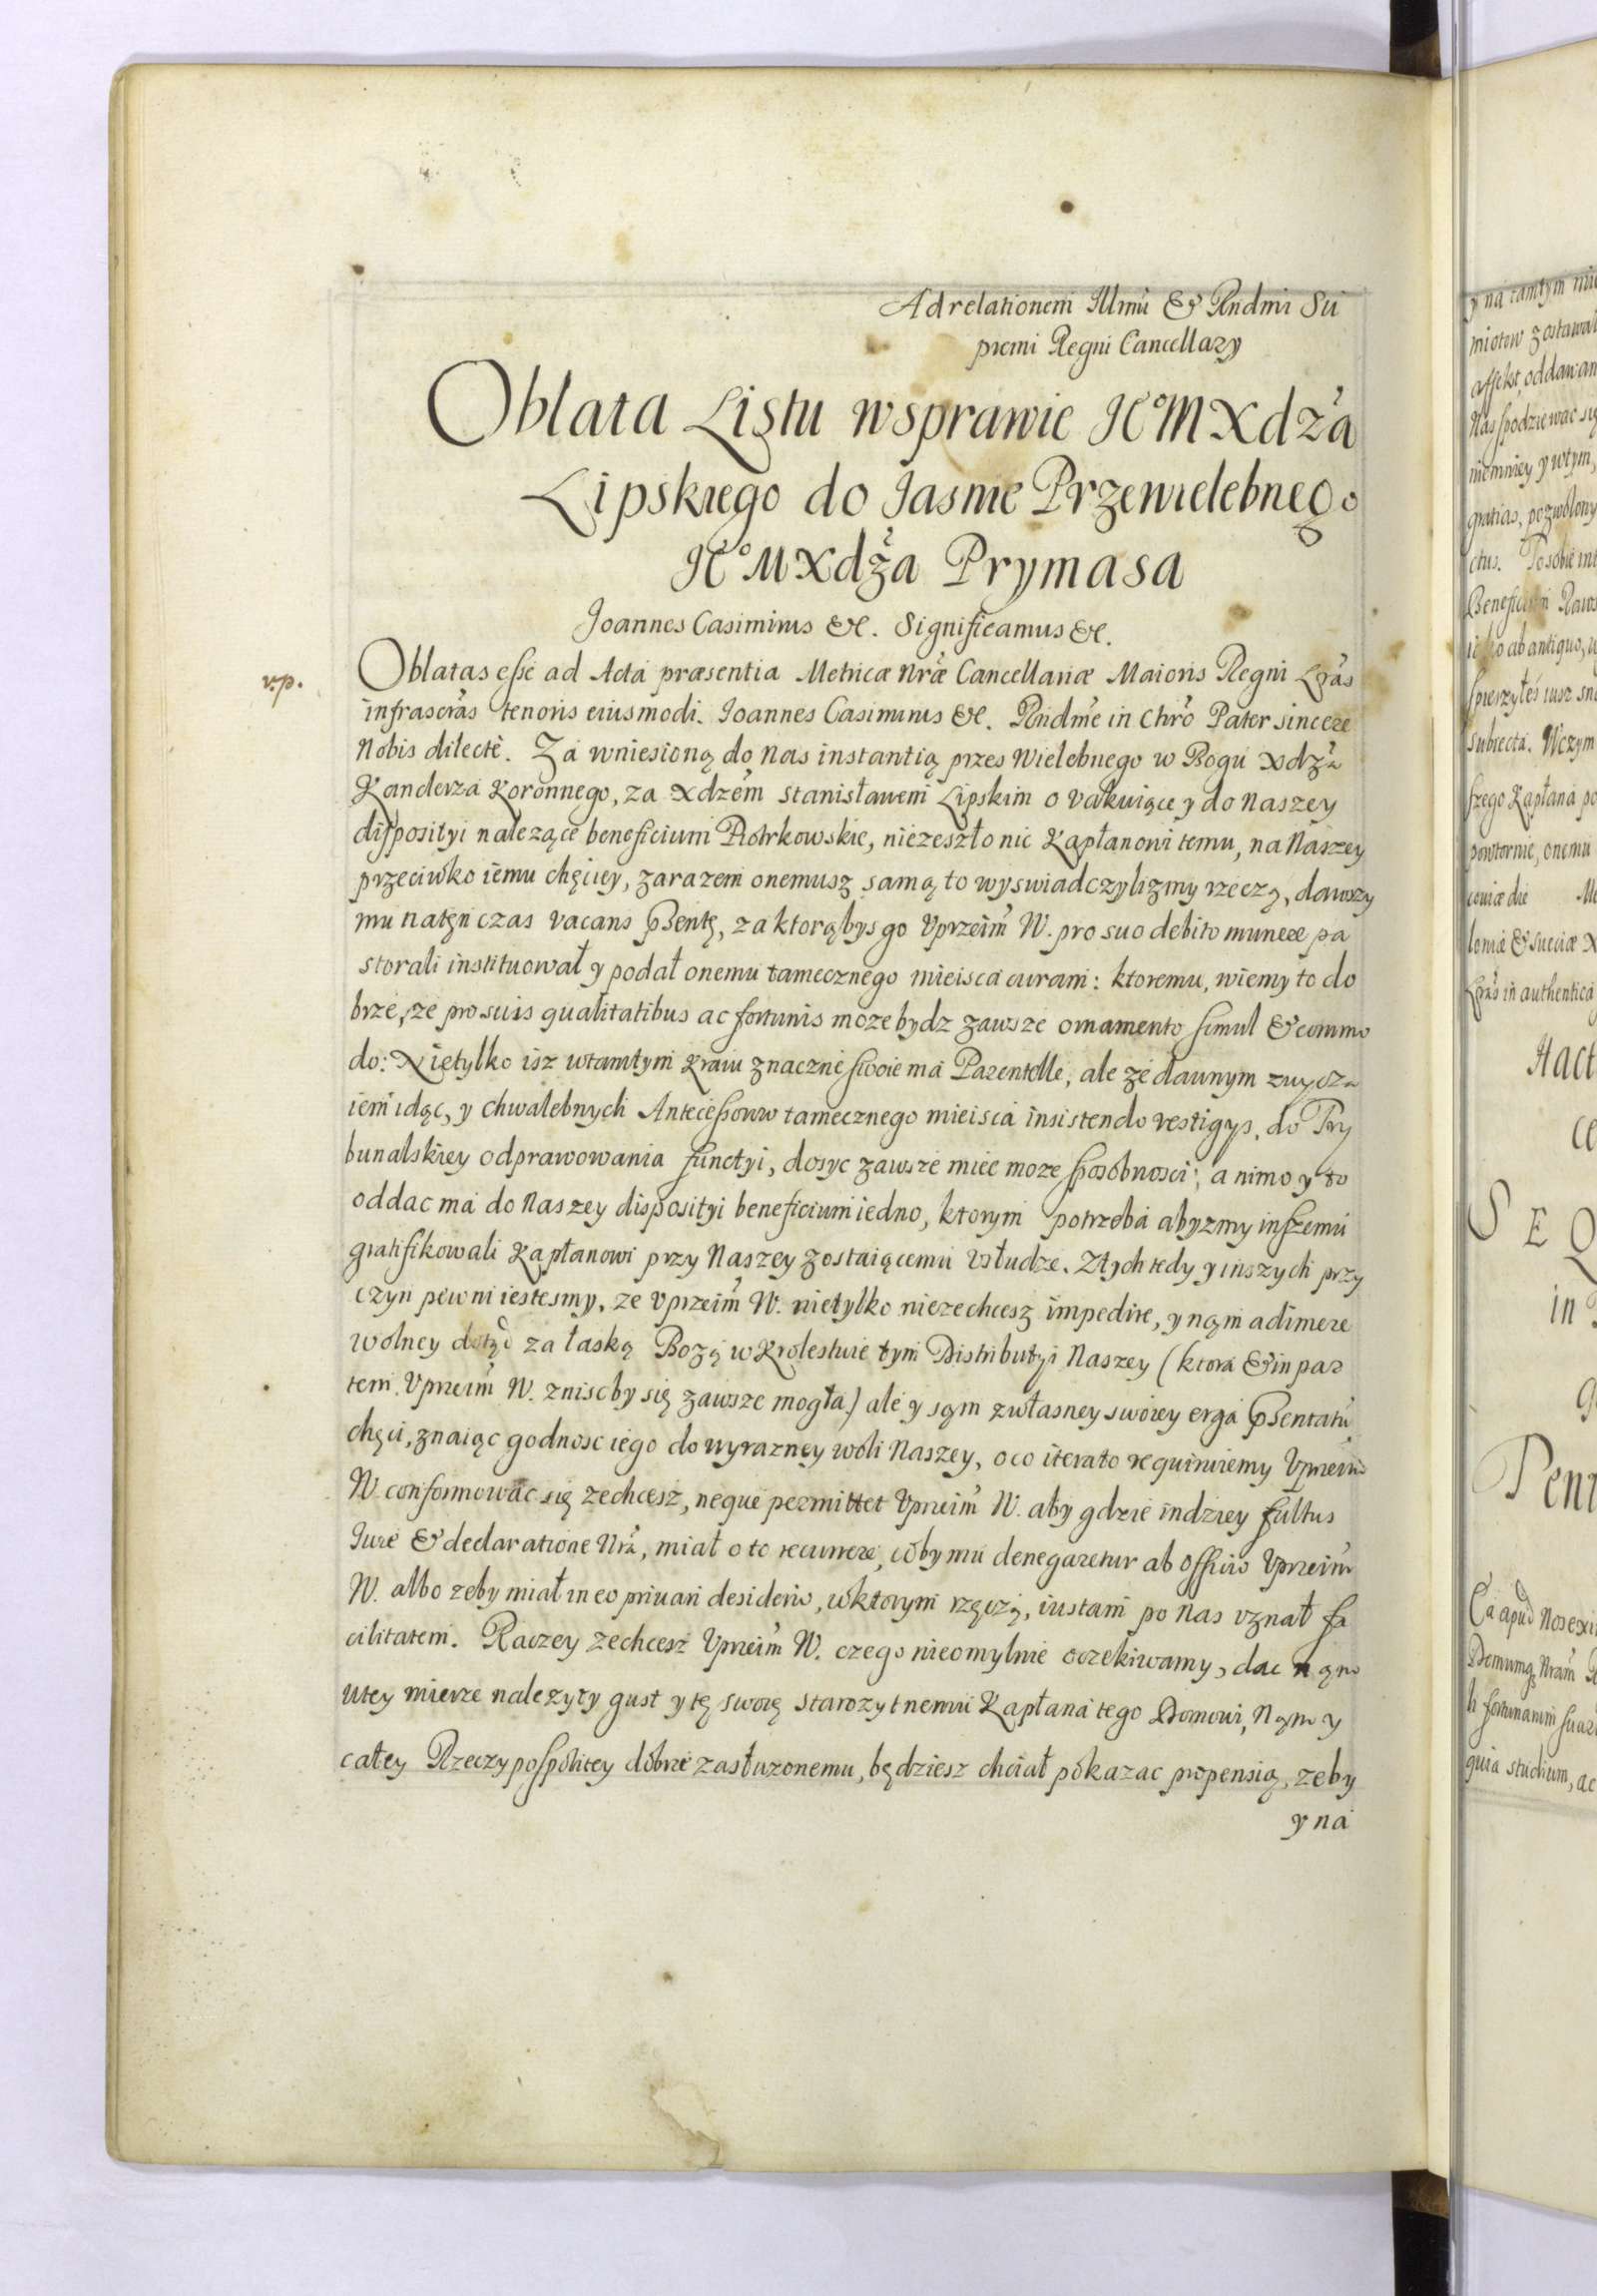 Ad relationem Illmi & Rndmi Su
premi Regni Cancellary
Oblata Listu w sprawie JeºM Xdza
Lipskiego do Jasnie Przewielebnego
JeºM Xdza Prymasa
Joannes Casimirus &c. Significamus &c.
Oblatas esse ad Acta præsentia Metricæ Nræ Cancellariæ Maioris Regni Lras
infrascras tenoris eiusmodi. Joannes Casimirus &c. Rndme in Chro Pater sincere
Nobis dilecte. Za wniesioną do Nas instantią przes Wielebnego w Bogu xdza
Kanclerza Koronnego, za xdzem Stanisławem Lipskim o vakuiące y do Naszey
disposityi nalezące beneficium Piotrkowskie, niezeszło nic Kapłanowi temu, na Naszey
przeciwko iemu chęciey, zarazem onemusz samą to wyswiadczylizmy rzeczą, dawszy
mu natęn czas vacans Psentę, za ktorąbys go Vprzeim W. pro suo debito munere pa
storali instituował y podał onemu tamecznego mieisca curam: ktoremu, wiemy to do
brze, ze pro suis qualitatibus ac fortunis moze bydz zawsze ornamento simul & commo
do: Nietylko isz wtamtym Kraiu znaczne swoie ma Parentelle, ale ze dawnym zwycza
iem idąc, y chwalebnych Antecessorow tamecznego mieisca insistendo vestigys, do Try
bunalskiey odprawowania functyi, dosyc zawsze miec moze sposobnosci; a nimo y to
oddac ma do Naszey disposityi beneficium iedno, ktorym potrzeba abyzmy inszemu
gratifikowali Kapłanowi przy Naszey zostaiącemu Vsłudze. Ztych tedy y inszych przy
czyn pewni iestesmy, ze Vprzeim W. nietylko niezechcesz impedire, y nąm adimere
wolney dotąd za łaską Bozą w Krolestwie tym Distributyi Naszey (ktora & in par
tem Vprzeim W. zniscby się zawsze mogła) ale y sąm zwłasney swoiey erga Psentatu
chęci, znaiąc godnosc iego do wyrazney woli Naszey, oco iterato requiruiemy Vprzeim
W. conformowac się zechcesz, neque permittet Vprzeim W. aby gdzie indziey fultus
Jure & declaratione Nra, miał o to recurrere, coby mu denegaretur ab officio Vprzeim
W. albo zeby miał in eo privari desiderio, wktorym rzęczą, iustam po Nas vznał fa
cilitatem. Raczey zechcesz Vprzeim W. czego nieomylnie oczekiwamy, dac nąm
wtey mierze nalezyty gust y tę swoię starozytnemu Kapłana tego Domowi, Nąm y
całey Rzeczypospolitey dobrze zasłuzonemu, będziesz chciał pokazac propensią, zeby
y na
y na tamtym
miotow zostawał
affekt, oddawam
Nas spodziewac się
niemniey y wtym,
gratias, pozwolony
ctus. To sobie
Beneficium
ab antiquo,
subiecta. Wczym
szego Kapłana po
powtornie, onemu
loniæ & Sueciæ
Lras in authentica
S E Q
in
Ea apud Nos
Domumq Nram
h fortunarum
quia studium, ac